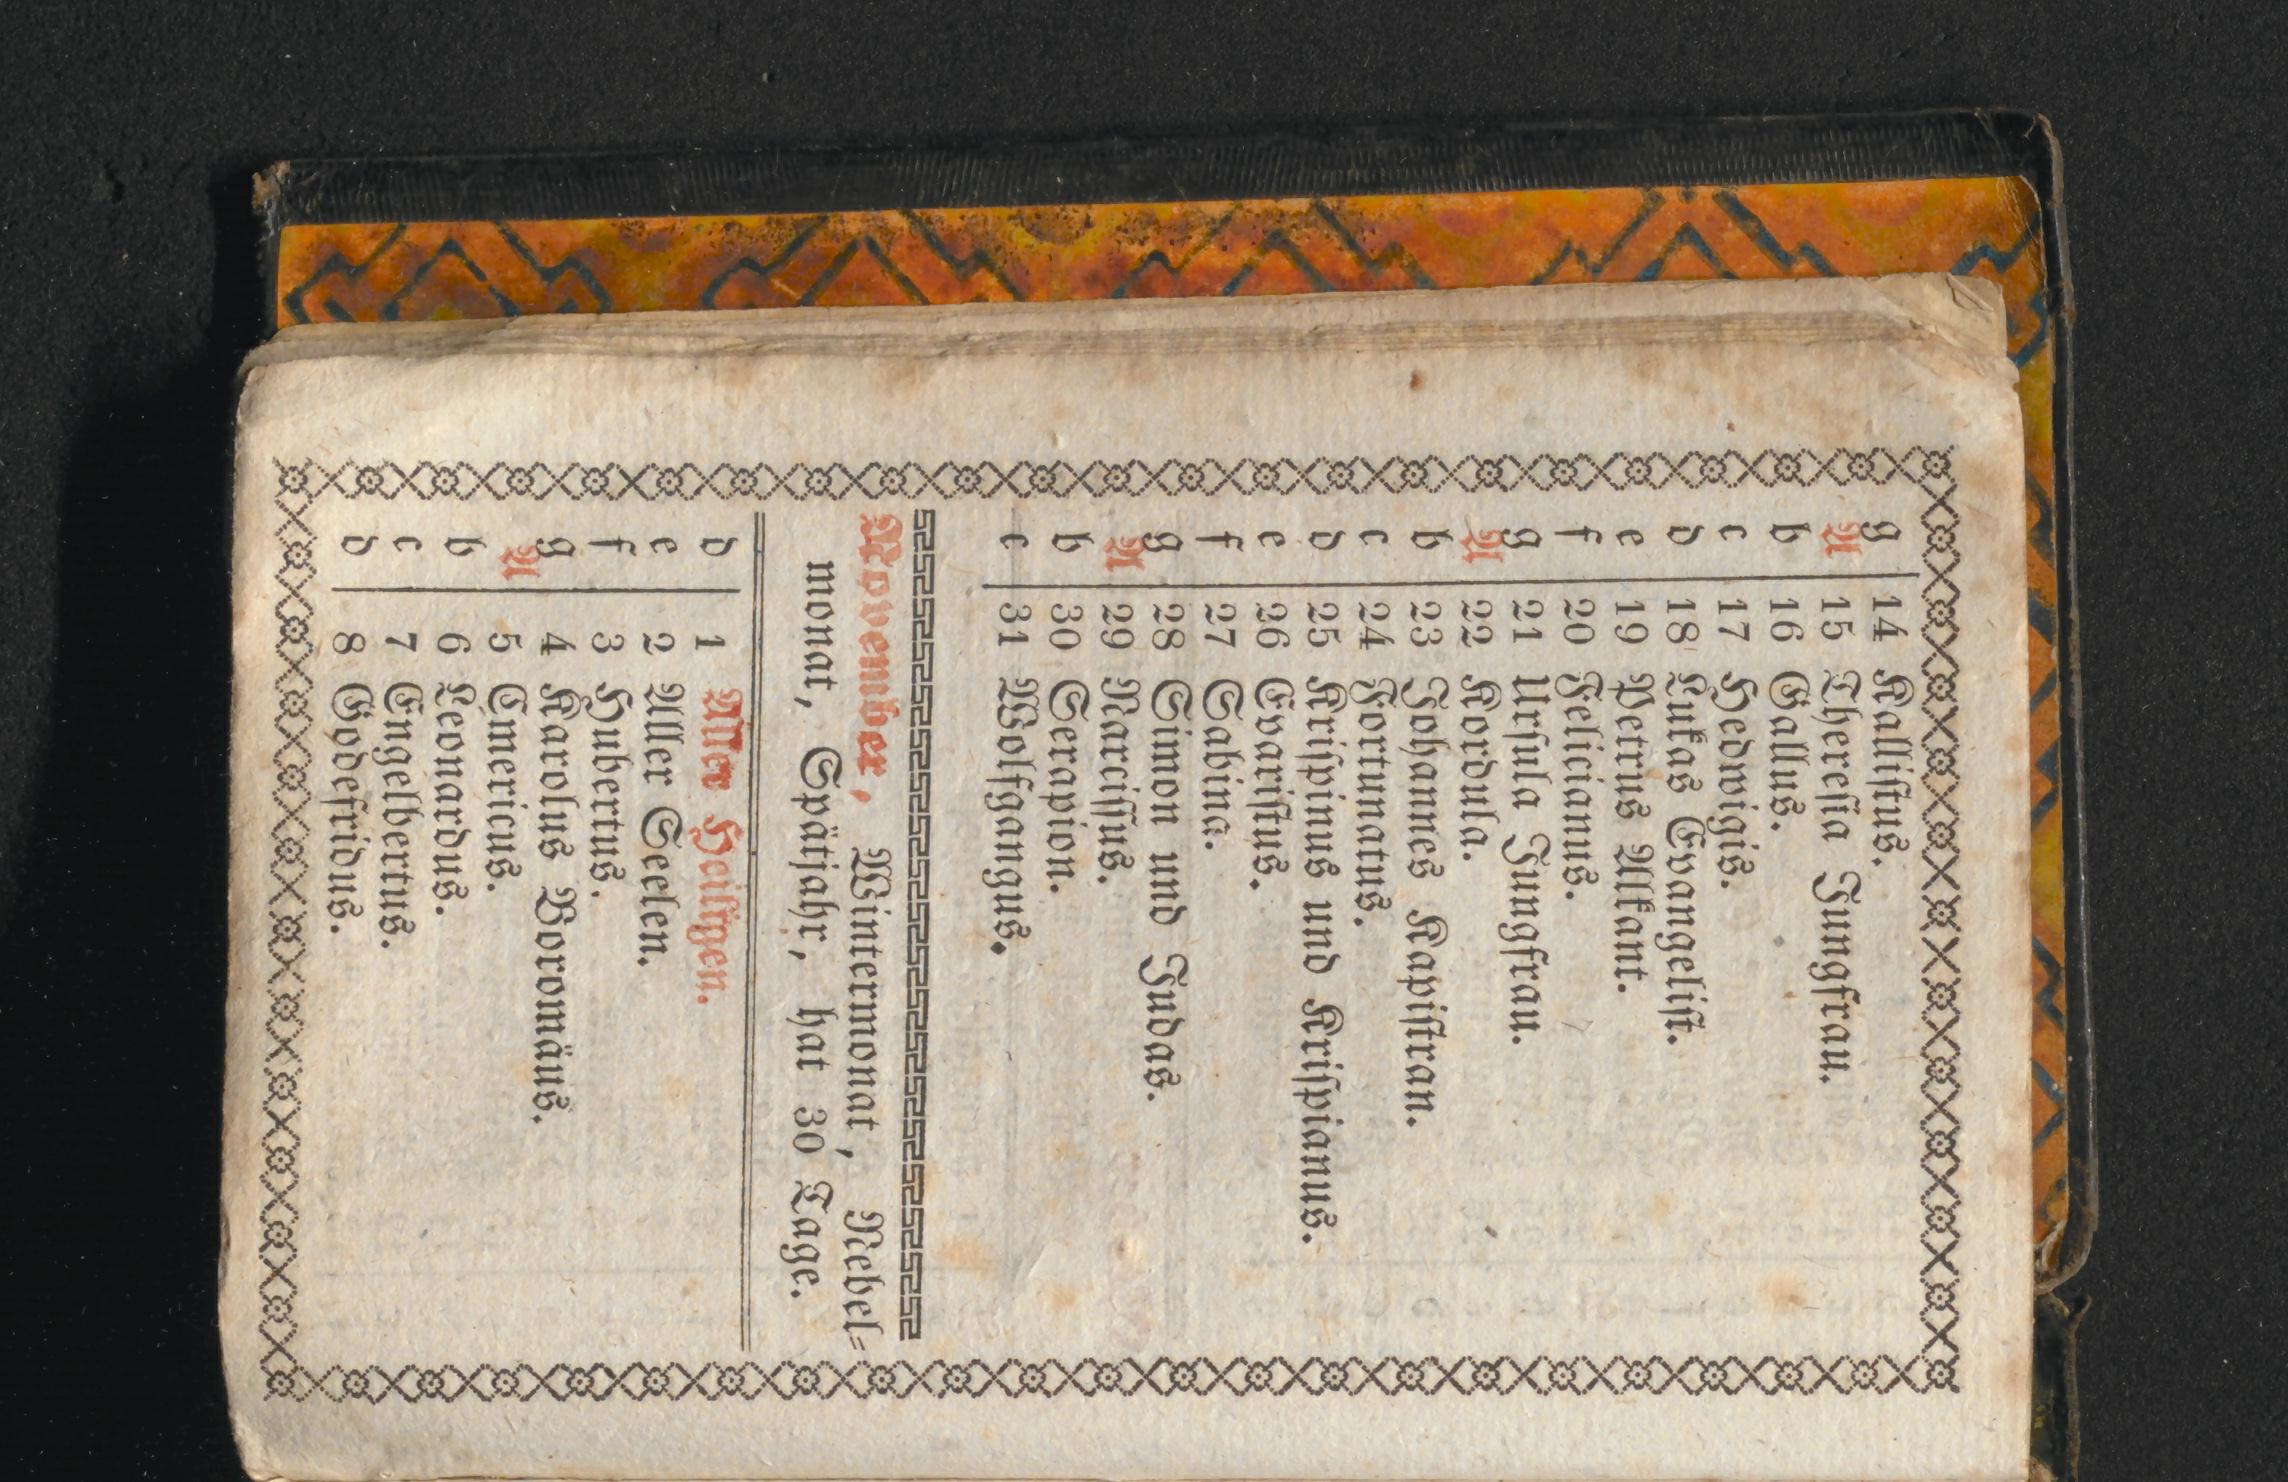 g 14 Kallistus.
A 15 Theresia Jungfrau.
b 16 Gallus.
c 17 Hedwigis.
d 18 Lukas Evangelist.
e 19 Petrus Alkant.
f 20 Felicianus.
g 21 Ursula Jungfrau.
A 22 Kordula.
b 23 Johannes Kapistran.
c 24 Fortunatus.
d 25 Krispinus und Krispianus.
e 26 Evaristus.
f 27 Sabina.
g 28 Simon und Judas.
A 29 Narcissus.
b 30 Serapion.
c 31 Wolfgangus.
November, Wintermonat, Nebel=
monat, Spätjahr, hat 30 Tage.
d 1 Aller Heiligen.
e 2 Aller Seelen.
f 3 Hubertus.
g 4 Karolus Boromäus.
A 5 Emericus.
b 6 Leonardus.
c 7 Engelbertus.
d 8 Godefridus.